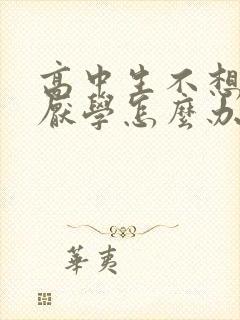 高中生不想
厭學怎麼办
華夷